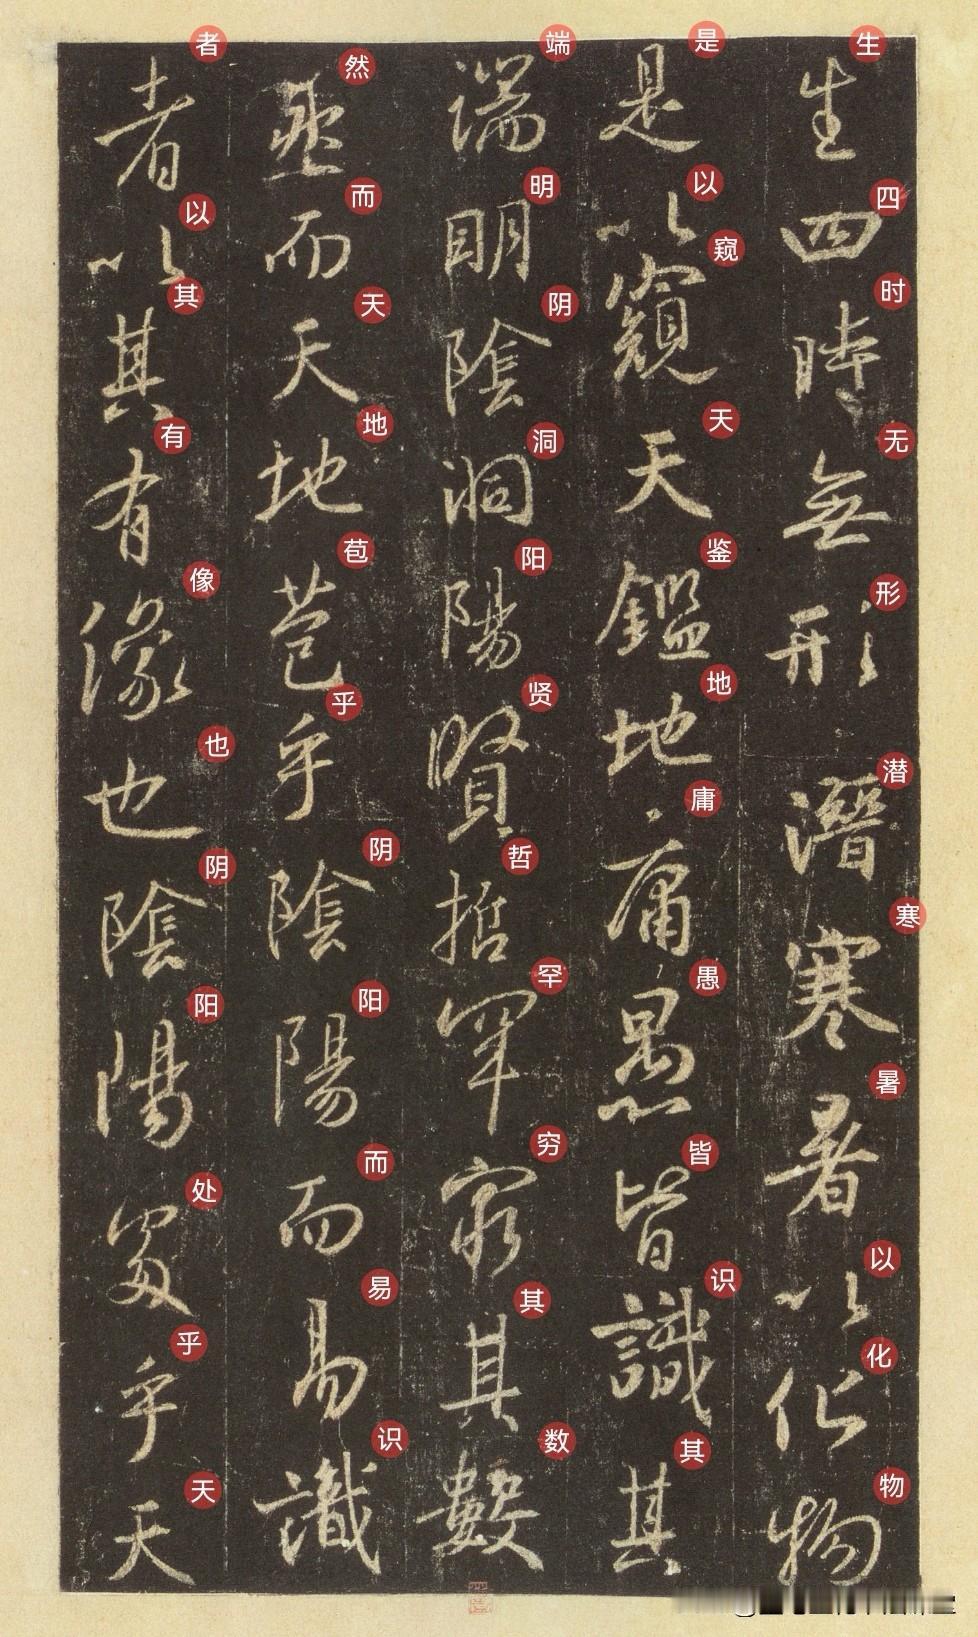 生四時無形潛寒暑以化物
生四时无形潜寒暑以化物
是以窺天鑑地庸愚皆識其
是以窥天鉴地庸愚皆识其
端明陰洞陽賢哲罕窮其數
端明阴洞阳贤哲罕穷其数
然而天地苞乎陰陽而易識
然而天地苞乎阴阳而易识
者以其有像也陰陽處乎天
者以其有像也阴阳处乎天